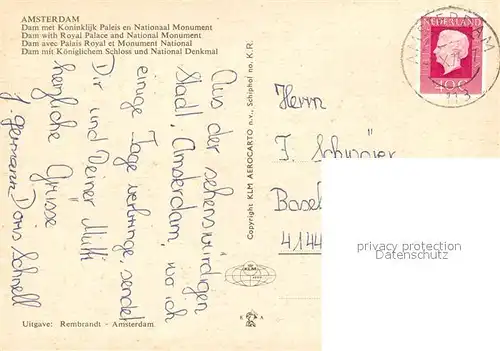 AMSTERDAM
Dam met Koninklijk Paleis en Nationaal Monument
Dam with Royal Palace and National Monument
Dam avec Palais Royal et Monument National
Dam mit Königlichem Schloss und National Denkmal
Aus der sehenswürdigen
Stadt, Amsterdam, wo ich
einige Tage verbringe, sendet
Dir und Deiner Mutti
herzliche Grüsse
Doris Schnell
Uitgave: Rembrandt - Amsterdam
Copyright KLM AEROCARTO n.v., Schiphol no. K.R.
KLM
K A
AMSTERDAM
NEDERLAND
Herrn
F.
Basel
4144
privacy protection
Datenschutz